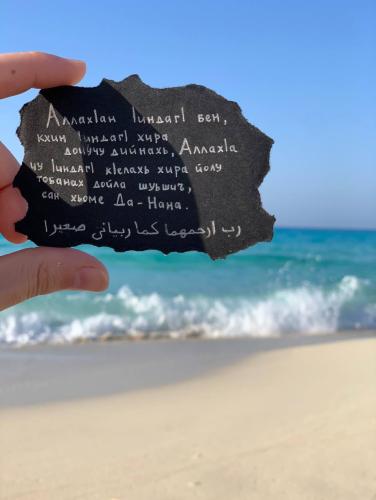 Аллахӏан ӏиндагӏ бен,
кхин ӏиндагӏ хира
доцучу дийнахь, Аллахӏа
шу ӏиндагӏ кӏелахь хира йолу
тобанах дойла шуьшиъ,
сан хьоме Да-Нана.
رب ارحمهما كما ربياني صغيرا